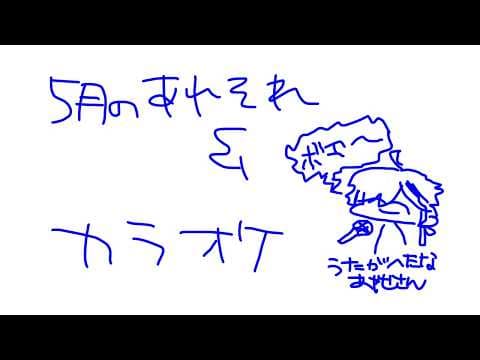 5月のあれそれ
&
カラオケ
ボエ〜
うたがへたな
あやせさん